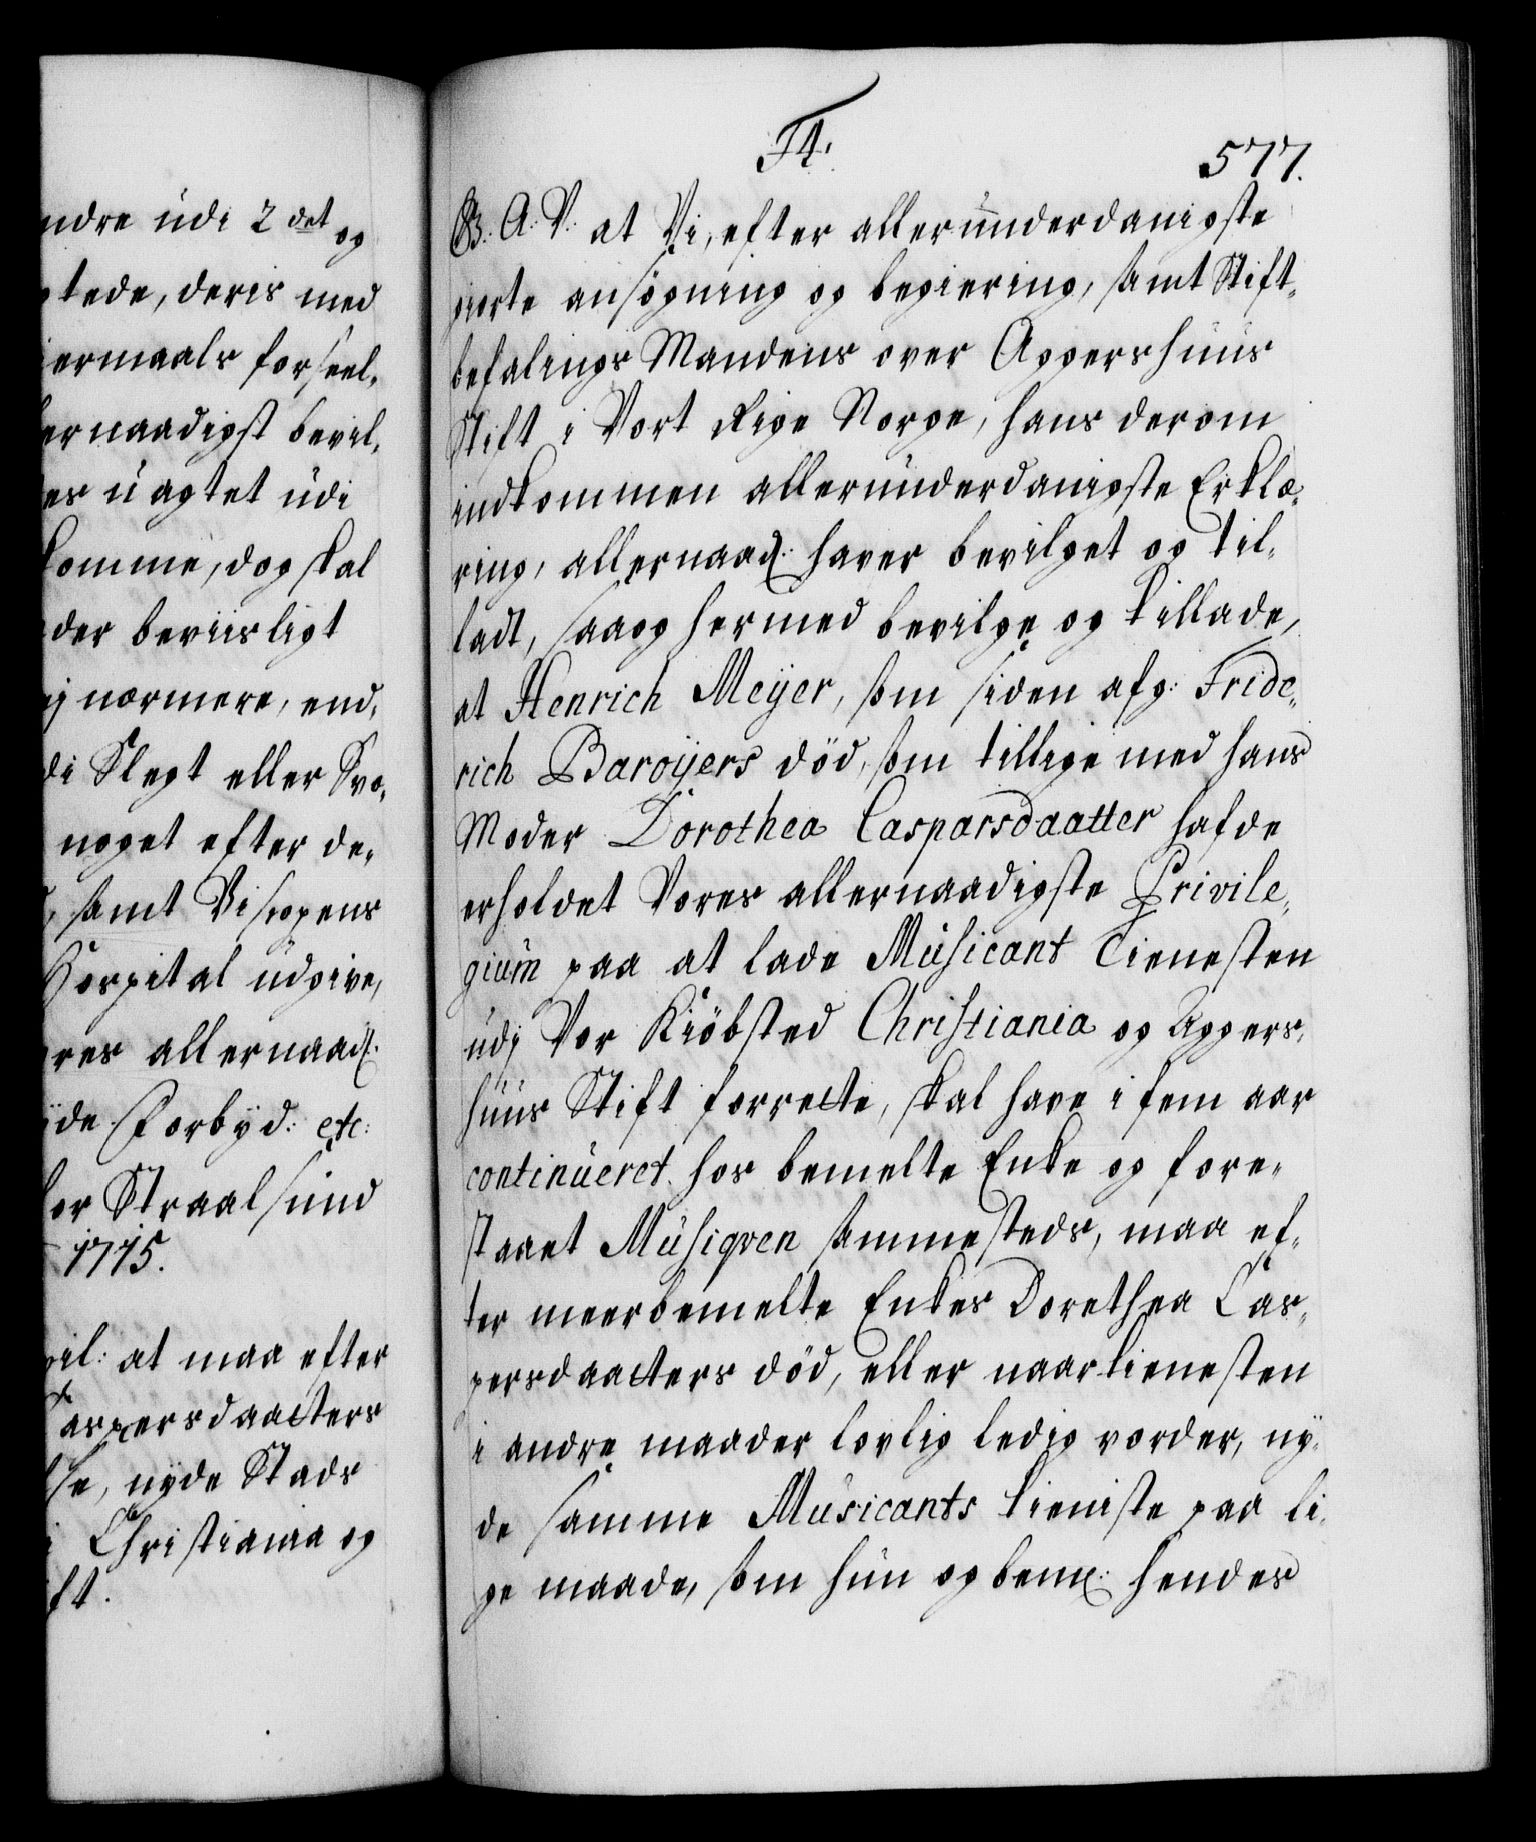 ndre udi 2det og
tede, deris med
iermaals forseel,
ernaadigst bevil,
es uagtet udi
komme, dog skal
der beviisligt
ej nærmere, end,
di Slegt eller Svo,
noget efter de,
, samt Bispens
Hospital udgive,
res allernaad:
yde. Forbyd: etc:
or Straalsund
1715.
vil: at maa efter
Caspersdaatters
se, nyde Stads
i Christiania og
ft.
F4.
577.
G: A: V: at Vi, efter allerunderdanigste
giorte ansøgning og begiering, samt Stift,
befalings Mandens over Aggershuus
Stift i Vort Rige Norge, hans derom
indkommen allerunderdanigste Erklæ,
ring, allernaad: haver bevilget og til,
ladt, saa og hermed bevilge og tillade,
at Henrich Meyer, som siden afg: Fride,
rich Baroyers død, som tillige med hans
Moder Dorothea Casparsdaatter hafde
erholdet Vores allernaadigste Privile,
gium paa at lade Musicant Tienesten
udj Vor Kiøbsted Christiania og Aggers,
huus Stift forrette, skal have i fem aar
continueret hos bemelte Enke og fore,
staaet Musiqven sammesteds, maa ef,
ter meerbemelte Enkes Dorethea Cas,
persdaatters død, eller naar tienesten
i andre maader lovlig ledig vorder, ny,
de samme Musicants tieniste paa li,
ge maade, som hun og bem: hendes